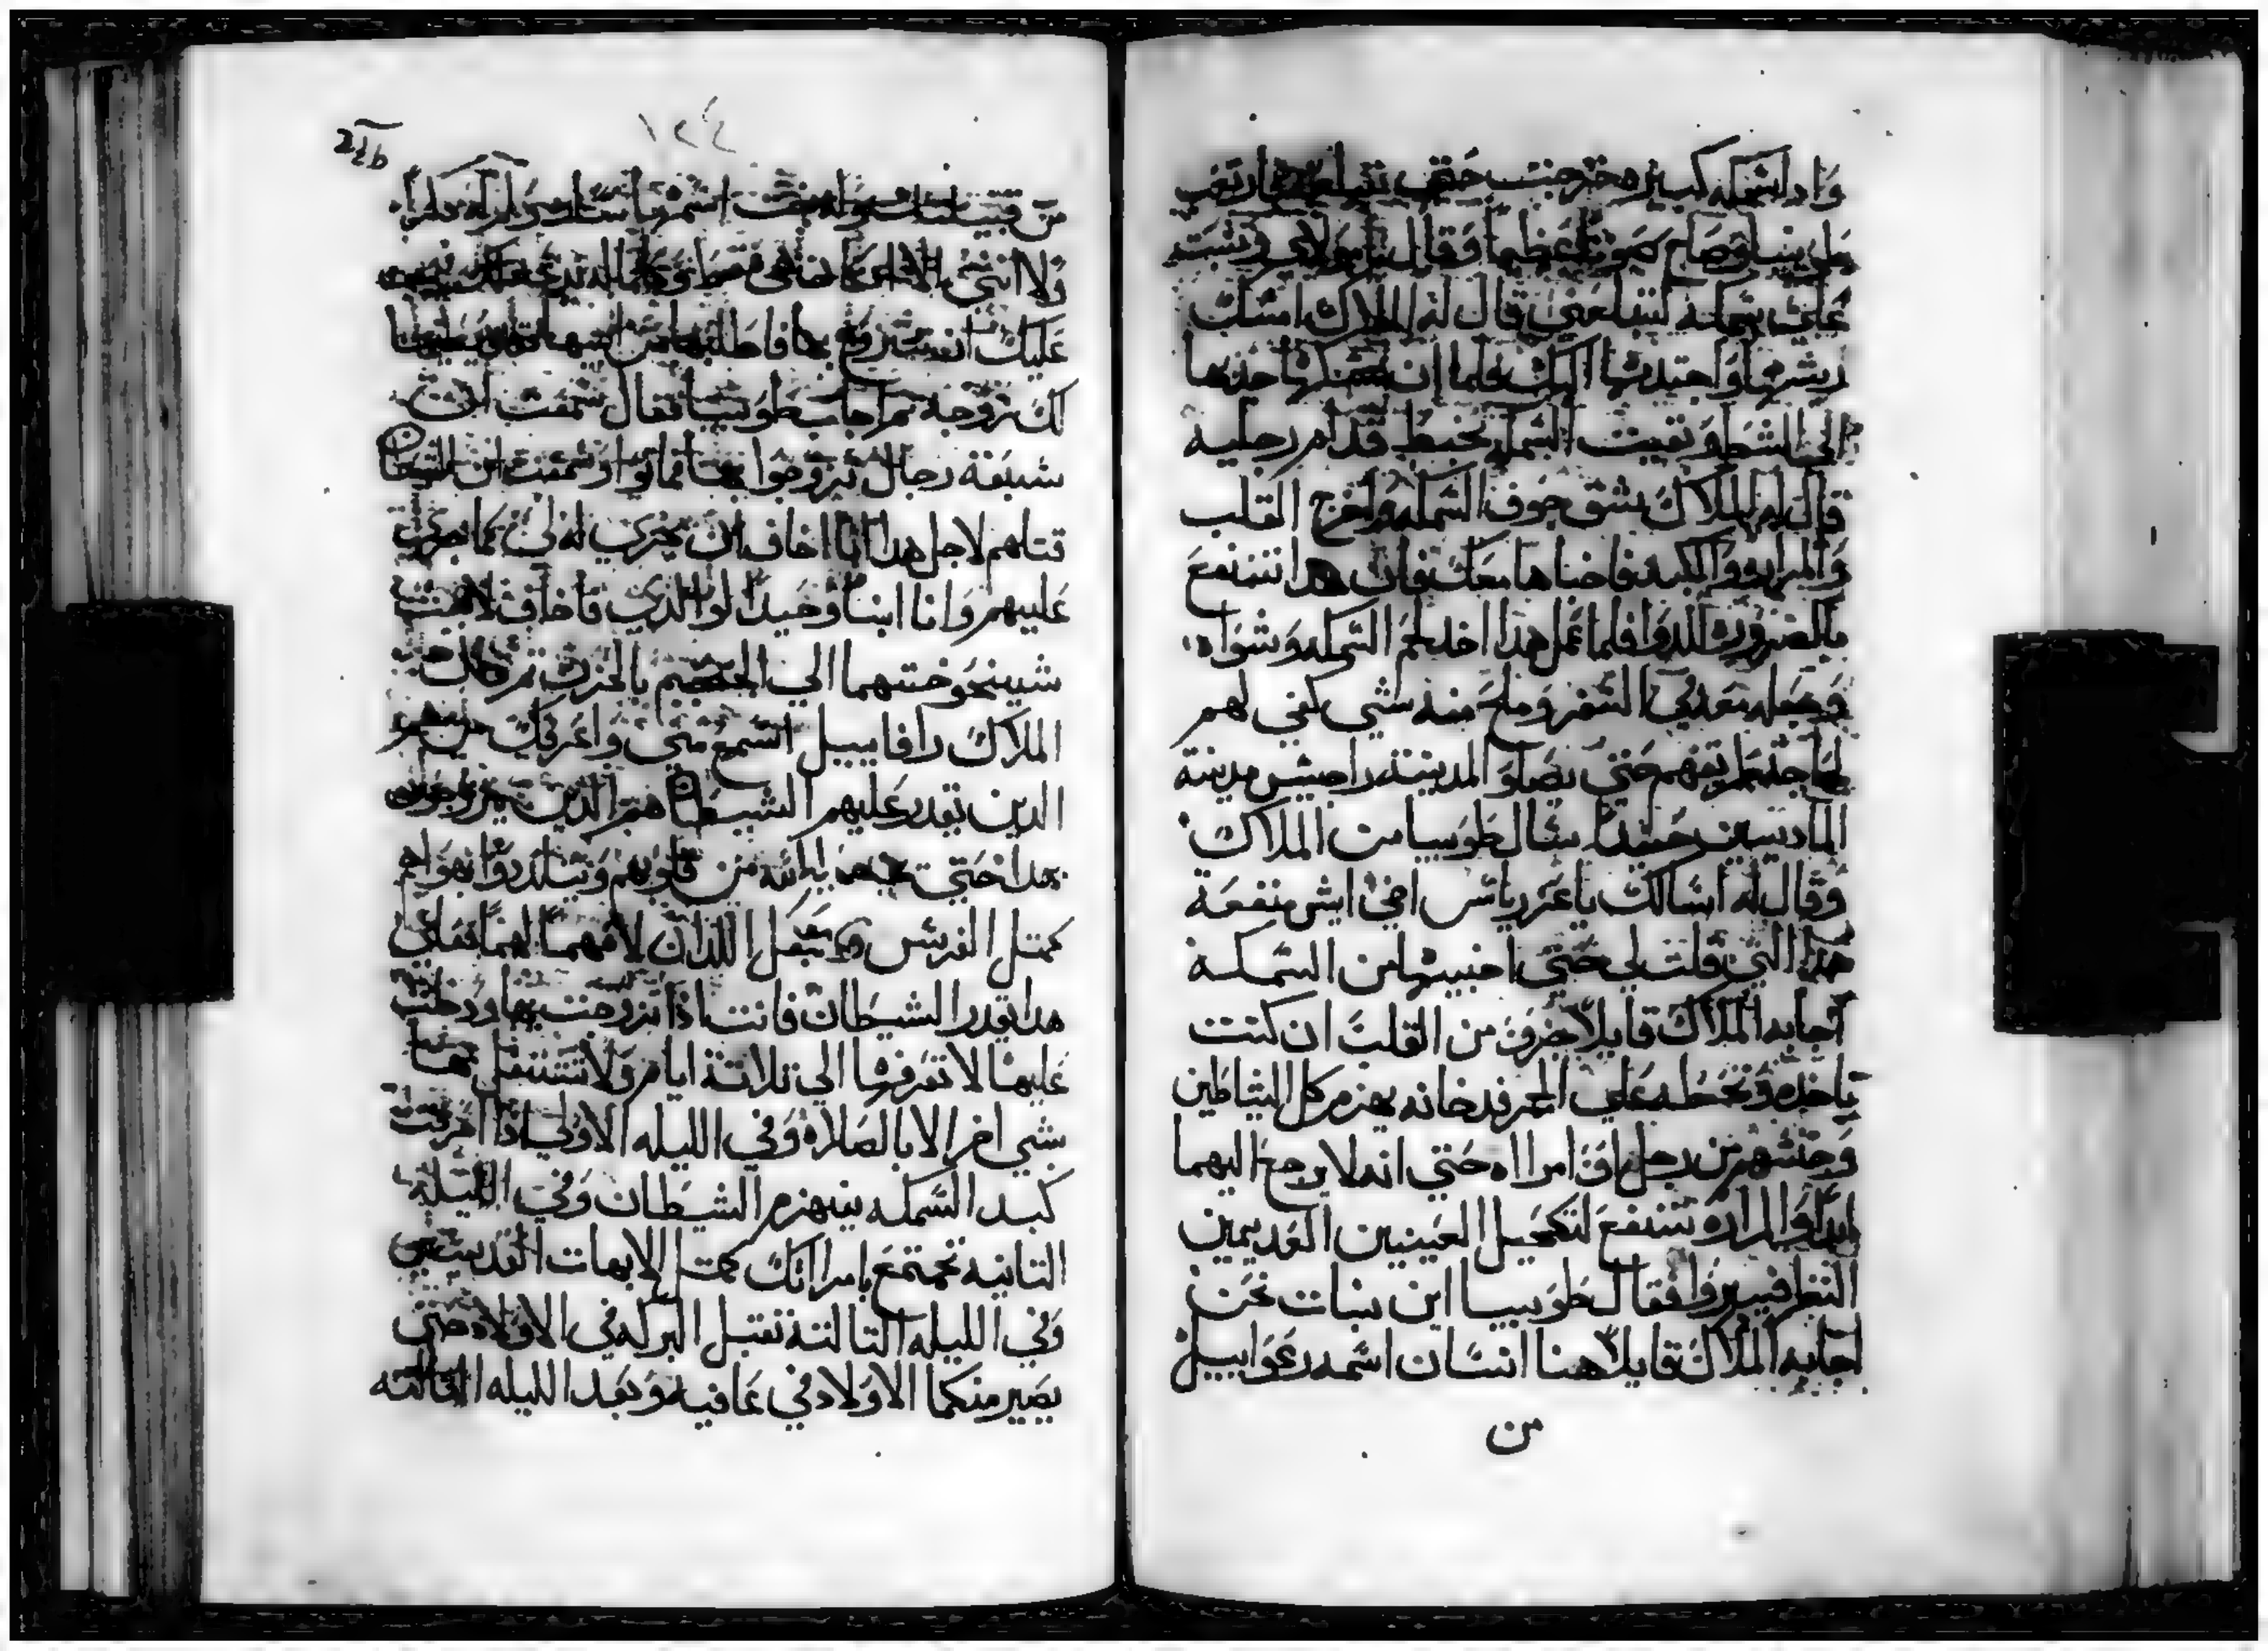 واد اشمكه كبيره خرجت حتي تبلعه فارتعب
طوبيسا وصاح صوتا عظيما وقال يا مولاي وثبت
علي سمكه لتبلعني قال له الملاك امسك
ريشها واجتدبها اليك فلما ان مسكها جذبها
الي الشط وبقيت السمكه تخبط قدام رجليه
قال له الملاك شق جوف السمكه واخرج القلب
والمراره والكبد فاخباها معك فان هدا تنفع
بالضروره للدوا فلما عمل هدا اخد لحم السمكه وشواه
وحمله معه في السفر وملح منه شي كفي لهم
لحاجتهم حتي يصلو المدينه راجيس مدينة
الماديسين حينيدا سال طوبيا من الملاك
وقال له اسالك يا عزرياس اخي ايش منفعة
هدا التي قلت لي حتي اخبيها من السمكه
اجابه الملاك قايلا جزو من القلب ان كنت
تاخده وتحطه علي الجمر فدخانه يهزم كل الشياطين
وجنسهم من رجل او امراه حتي انه لا يرجع اليهما
ابدا والمراره تنفع لتكحيل العينين العديمين
النظر فيبروا فقال طوبيا اين بنات نحن
اجابه الملاك قايلا هنا انسان اسمه رعوابيل
من
١٢٤
من قبيلتك وله بنت اسمها سارا
ولا انثي الا
عليك ان تتزوج بها فاطلبها من ابيها فانه يعطيها
لك زوجه ثم اجاب طوبيا فقال سمعت ان
سبعة رجال تزوجوا بها فماتوا وسمعت ان الشيطان
قتلهم لاجل هدا انا اخاف ان يجري لي كما جري
عليهم وانا ابنا وحيدا لوالدي فاخاف لا
شيخوختهما الي الجحيم بالحزن ثم قال
الملاك رافاييل اسمع مني واعرفك من هم
الدين يقدر عليهم الشيطان هم الذين يتزوجون
هدا حتي الله من قلوبهم ويتلددوا بهواهم
كمتل الفرس والبغل اللذان لا فهما لهما فعلي
هدا يقدر الشيطان فانت اذا تزوجت بها ودخلت
عليها لا تعرفها الي تلاتة ايام ولا تشتغل معها
شي اخر الا بالصلاه وفي الليله الاولي اذا احرقت
كبد السمكه ينهزم الشيطان وفي الليله
التانيه تجتمع بامراتك كمتل الابهات القديسين
وفي الليله التالته تقبل البركه في الاولاد حتي
يصير منكما الاولاد في عافيه وبعد الليله التالته